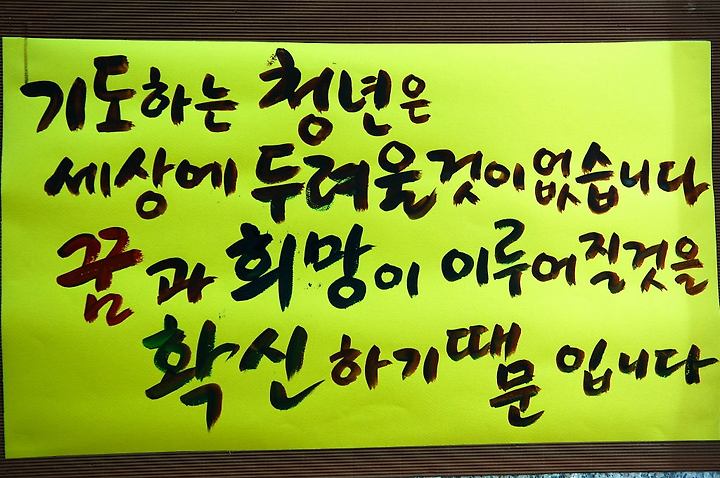 기도하는 청년은
세상에 두려울것이없습니다
꿈과 희망이 이루어질것을
확신하기때문 입니다